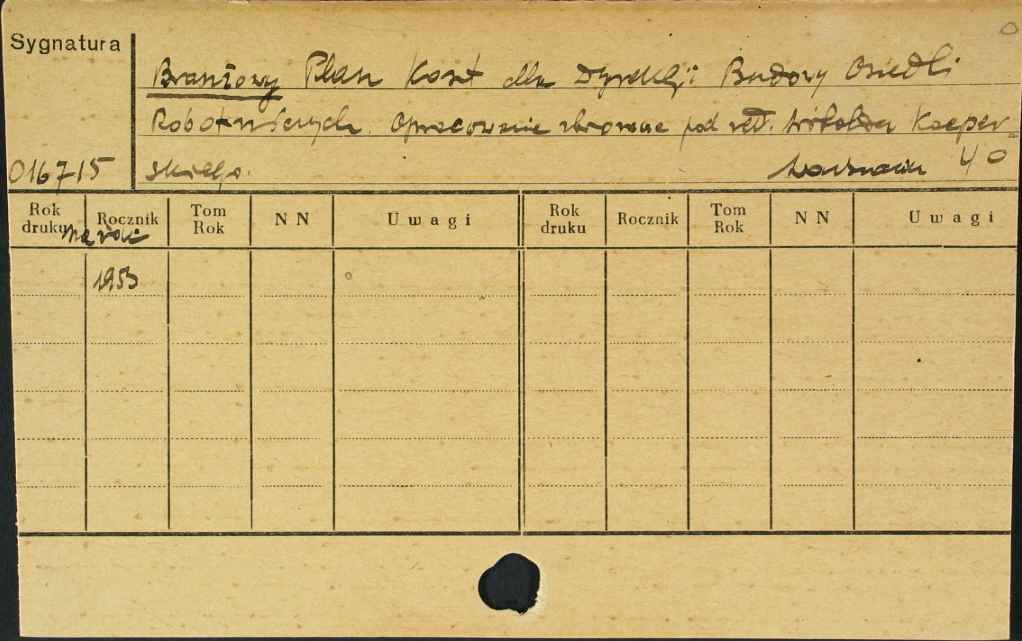 Sygnatura
Branżowy Plan Kont dla Dyrekcji Budowy Osiedli
Robotniczych. Opracowanie zbiorowe pod red. Witolda Kacper-
016715 skiego. Warszawa 40
Rok druku Rocznik Tom Rok NN Uwagi Rok druku Rocznik Tom Rok NN Uwagi
na rok
1953